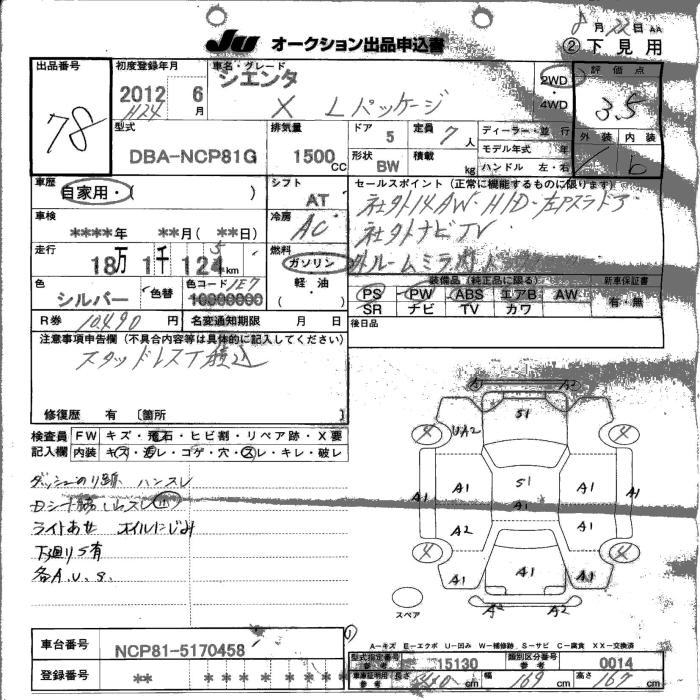 8月22日 AA
JU オークション出品申込書
② 下見用
出品番号
78
初度登録年月
2012年 6月
H24
車名・グレード
シエンタ
X Lパッケージ
2WD
4WD
評価点
3.5
外装 内装
b
型式
DBA-NCP81G
排気量
1500 CC
ドア
5
定員
7人
形状
BW
積載
kg
ディーラー・並行
モデル年式 年
ハンドル 左・右
車歴
自家用・( )
シフト
AT
セールスポイント(正常に機能するものに限ります)
社外14AW・HID・左Pスラドア
社外ナビTV
車検
****年 **月(**日)
冷房
AC
走行
18万 1千 124km
5
燃料
ガソリン
軽・油
( )
色
シルバー
色替
色コード 1E7
10000000
装備品(純正品に限る)
新車保証書
PS PW ABS エアB AW
SR ナビ TV カワ
有・無
R券 10490円
名変通知期限 月 日
後日品
注意事項申告欄(不具合内容等は具体的に記入してください)
スタッドレスT積込
修復歴 有 〔箇所 〕
検査員 FW キズ・飛石・ヒビ割・リペア跡・X要
記入欄 内装 キズ・汚レ・コゲ・穴・スレ・キレ・破レ
ダッシュのり跡 ハンスレ
ライトあせ オイルにじみ
下廻りS有
各A.U.S.
A2
S1
4 UA2 4
A1 A1 S1 A1 A1
A1
A2 A1
4 4
A1 A1 A1
A2 A2
スペア
車台番号
NCP81-5170458
登録番号
** * * * * * * *
A−キズ E−エクボ U−凹み W−補修跡 S−サビ C−腐食 XX−交換済
型式指定番号 参考 15130
類別区分番号 参考 0014
車庫証明用 参考 長さ cm 幅 169 cm 高さ 167 cm